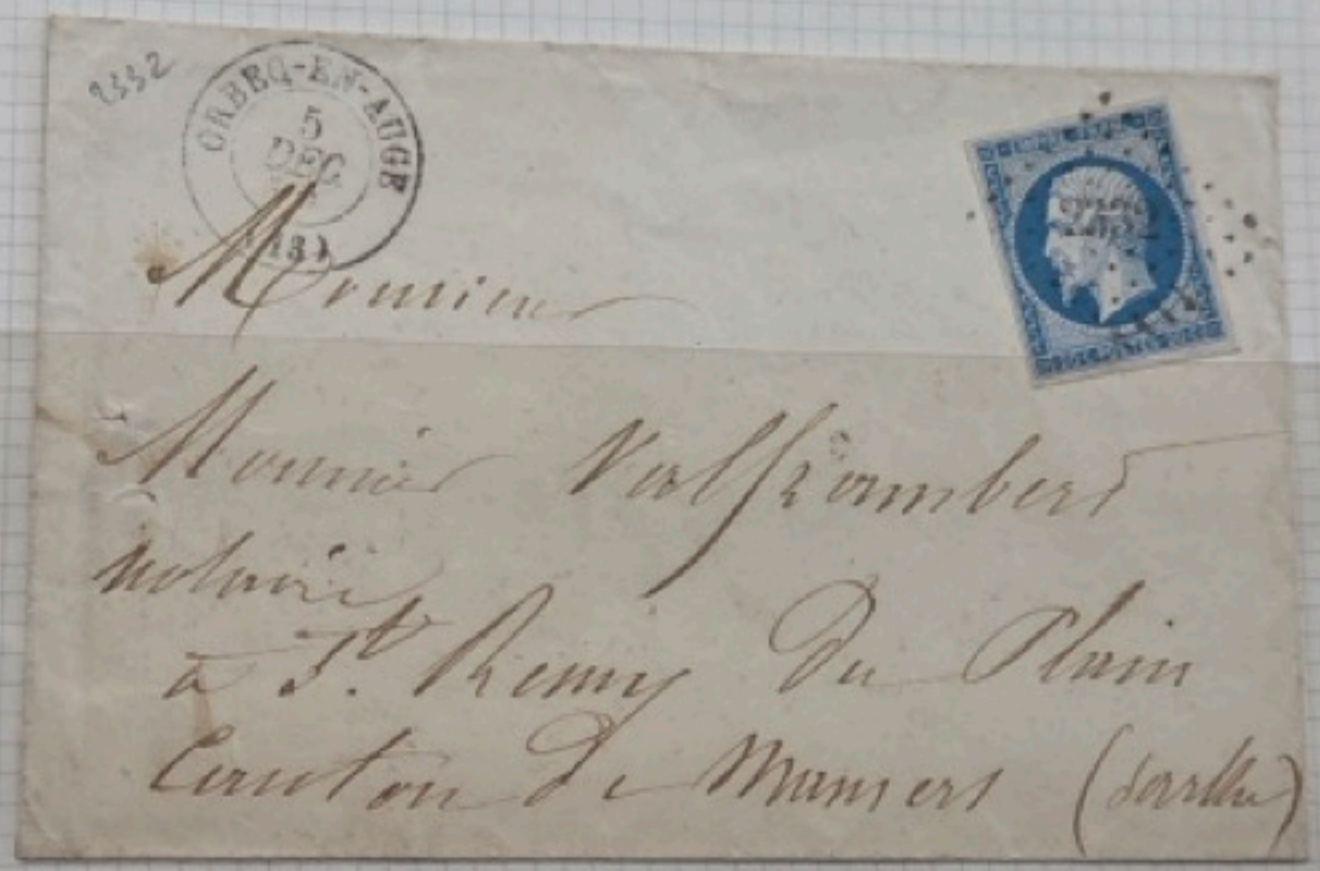 2332
ORBEC-EN-AUGE
5
DEC
(13)
Monsieur
Monsieur Valframbert
notaire
à St. Remy du Plain
Canton de Mamers (Sarthe)